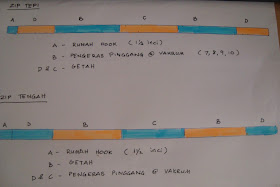 ZIP TEPI
A D B C B D
A - RUMAH HOOK ( 1½ inci )
B - PENGERAS PINGGANG @ VAKRUM ( 7, 8, 9, 10 )
D & C - GETAH
ZIP TENGAH
A D B C B D
A - RUMAH HOOK ( 1½ inci )
B - GETAH
D & C - PENGERAS PINGGANG @ VAKRUM